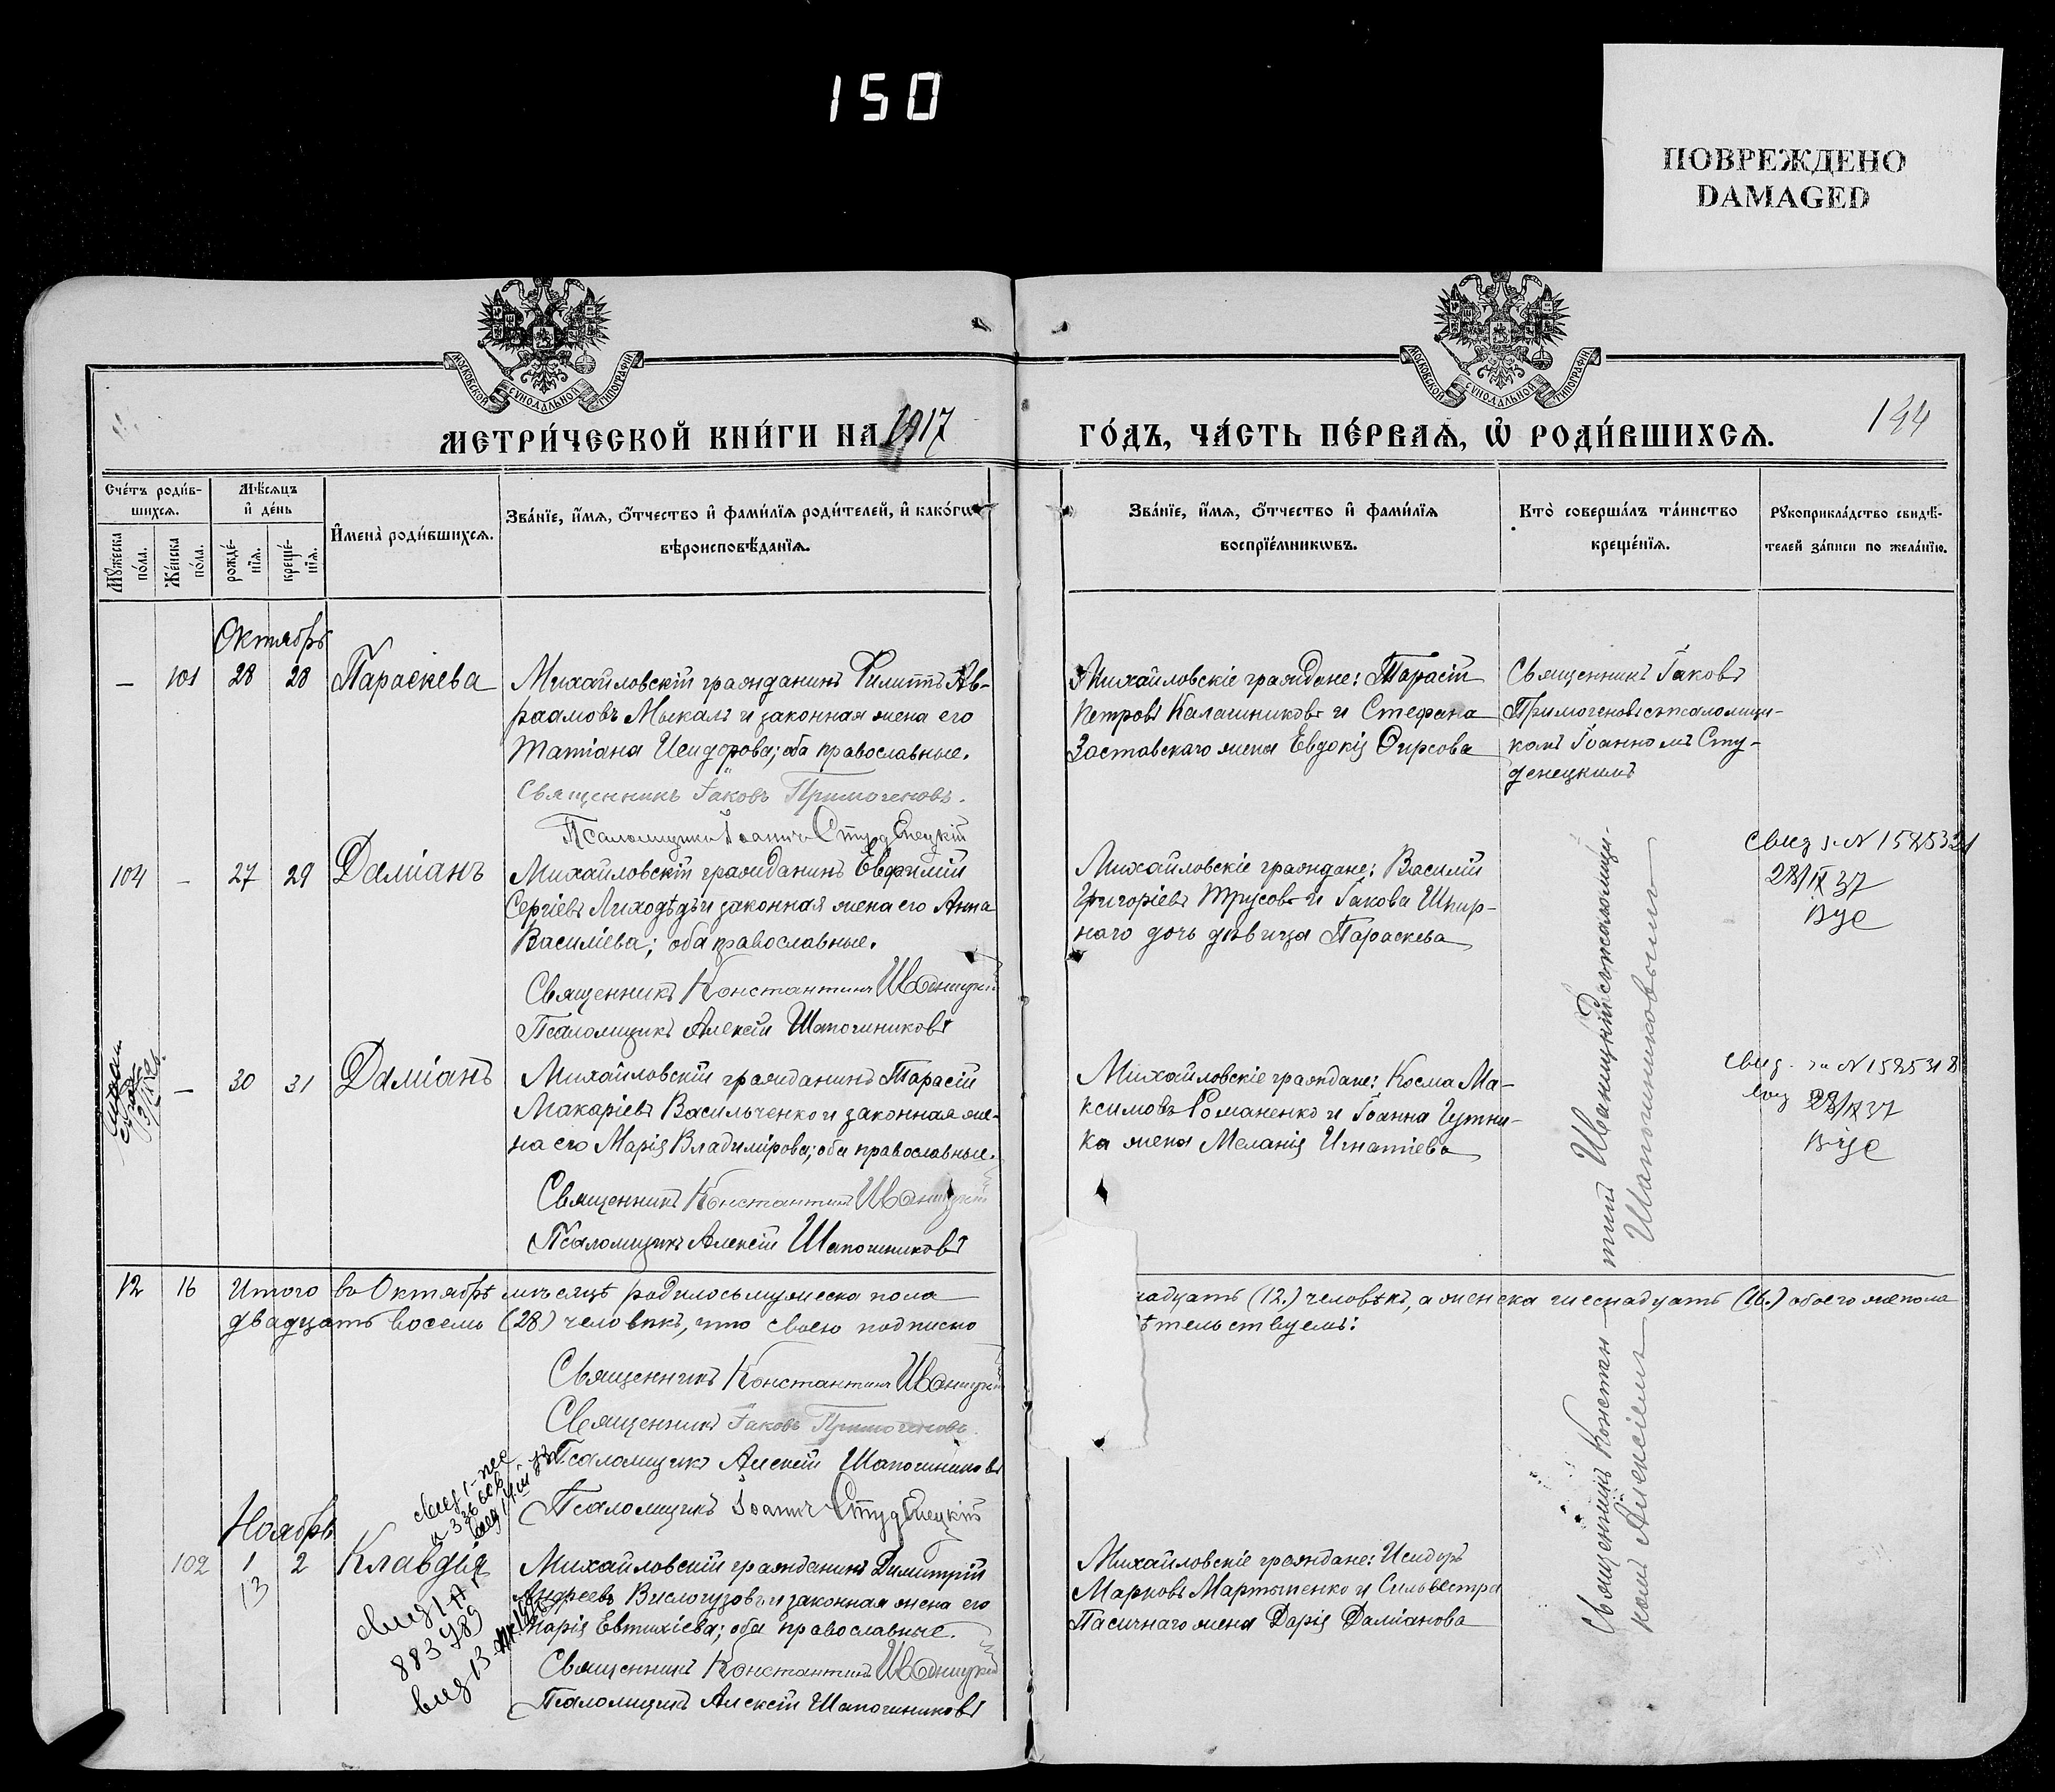 150
ПОВРЕЖДЕНО
DAMAGED
МОСКОВСКОЙ СУНОДАЛЬНОЙ ТИПОГРАФІИ
МОСКОВСКОЙ СУНОДАЛЬНОЙ ТИПОГРАФІИ
МЕТРИ́ЧЕСКОЙ КНИ́ГИ НА 1917
ГО́ДЪ, ЧА́СТЬ ПЕ́РВАѦ, Ѡ҆ РОДИ́ВШИХСѦ.
144
Сче́тъ роди́в-
шихсѧ.
Мѣ́сѧцъ
и҆ де́нь
Мꙋ́жеска
по́ла.
Же́нска
по́ла.
рожде́-
нїѧ.
креще́-
нїѧ.
И҆мена̀ роди́вшихсѧ.
Зва́нїе, и҆́мѧ, ѻ҆́тчество и҆ фами́лїѧ роди́телей, и҆ како́гѡ
вѣроисповѣ́данїѧ.
Зва́нїе, и҆́мѧ, ѻ҆́тчество и҆ фами́лїѧ
воспрїе́мникѡвъ.
Кто̀ соверша́лъ та́инство
креще́нїѧ.
Рꙋкоприкла́дство свидѣ́-
телей за́писи по жела́нїю.
Октябрь
— 101 28 28 Параскева
Михайловскій гражданинъ Филиппъ Ав-
раамовъ Мыкалъ и законная жена его
Татіана Исидорова; оба православные.
Священникъ Іаковъ Примогеновъ.
Псаломщикъ Іоаннъ Студенецкій
Михайловскіе граждане: Тарасій
Петровъ Калашниковъ и Стефана
Заставскаго жена Евдокія Ѳирсова
Священникъ Іаковъ
Примогеновъ съ псаломщи-
комъ Іоанномъ Сту-
денецкимъ
104 — 27 29 Даміанъ
Михайловскій гражданинъ Евфимій
Сергіевъ Лиходѣдъ и законная жена его Анна
Василіева; оба православные.
Священникъ Константинъ Иваницкій
Псаломщикъ Алексій Шапошниковъ
Михайловскіе граждане: Василій
Григоріевъ Трусовъ и Іакова Шпир-
наго дочь дѣвица Параскева
Свид N 1585321
28/IX 37
— 30 31 Даміанъ
Михайловскій гражданинъ Тарасій
Макаріевъ Васильченко и законная же-
на его Марія Владимірова; оба православные.
Священникъ Константинъ Иваницкій
Псаломщикъ Алексій Шапошниковъ
Михайловскіе граждане: Косма Ма-
ксимовъ Романенко и Іоанна Гутни-
ка жена Меланія Игнатіева
Свид. за N 1585318
28/IX 37
12 16 Итого въ Октябрѣ мѣсяцѣ родилось мужеска пола
надцать (12.) человѣкъ, а женска шеснадцать (16.) обоего же пола
двадцать восемь (28) человѣкъ, что своею подписью
ѣтельствуемъ:
Священникъ Константинъ Иваницкій
Священникъ Іаковъ Примогеновъ.
Псаломщикъ Алексій Шапошниковъ
Псаломщикъ Іоаннъ Студенецкій
Ноябрь
102 1 2 Клавдія
13
883489
Михайловскій гражданинъ Димитрій
Андреевъ Вислогузовъ и законная жена его
Марія Евтихіева; оба православные.
Священникъ Константинъ Иваницкій
Псаломщикъ Алексій Шапошниковъ
Михайловскіе граждане: Исидоръ
Марковъ Мартыненко и Сильвестра
Пасичнаго жена Дарія Даміанова
Священникъ Констан-
тинъ Иваницкій съ псаломщи-
комъ Алексіемъ
Шапошниковымъ